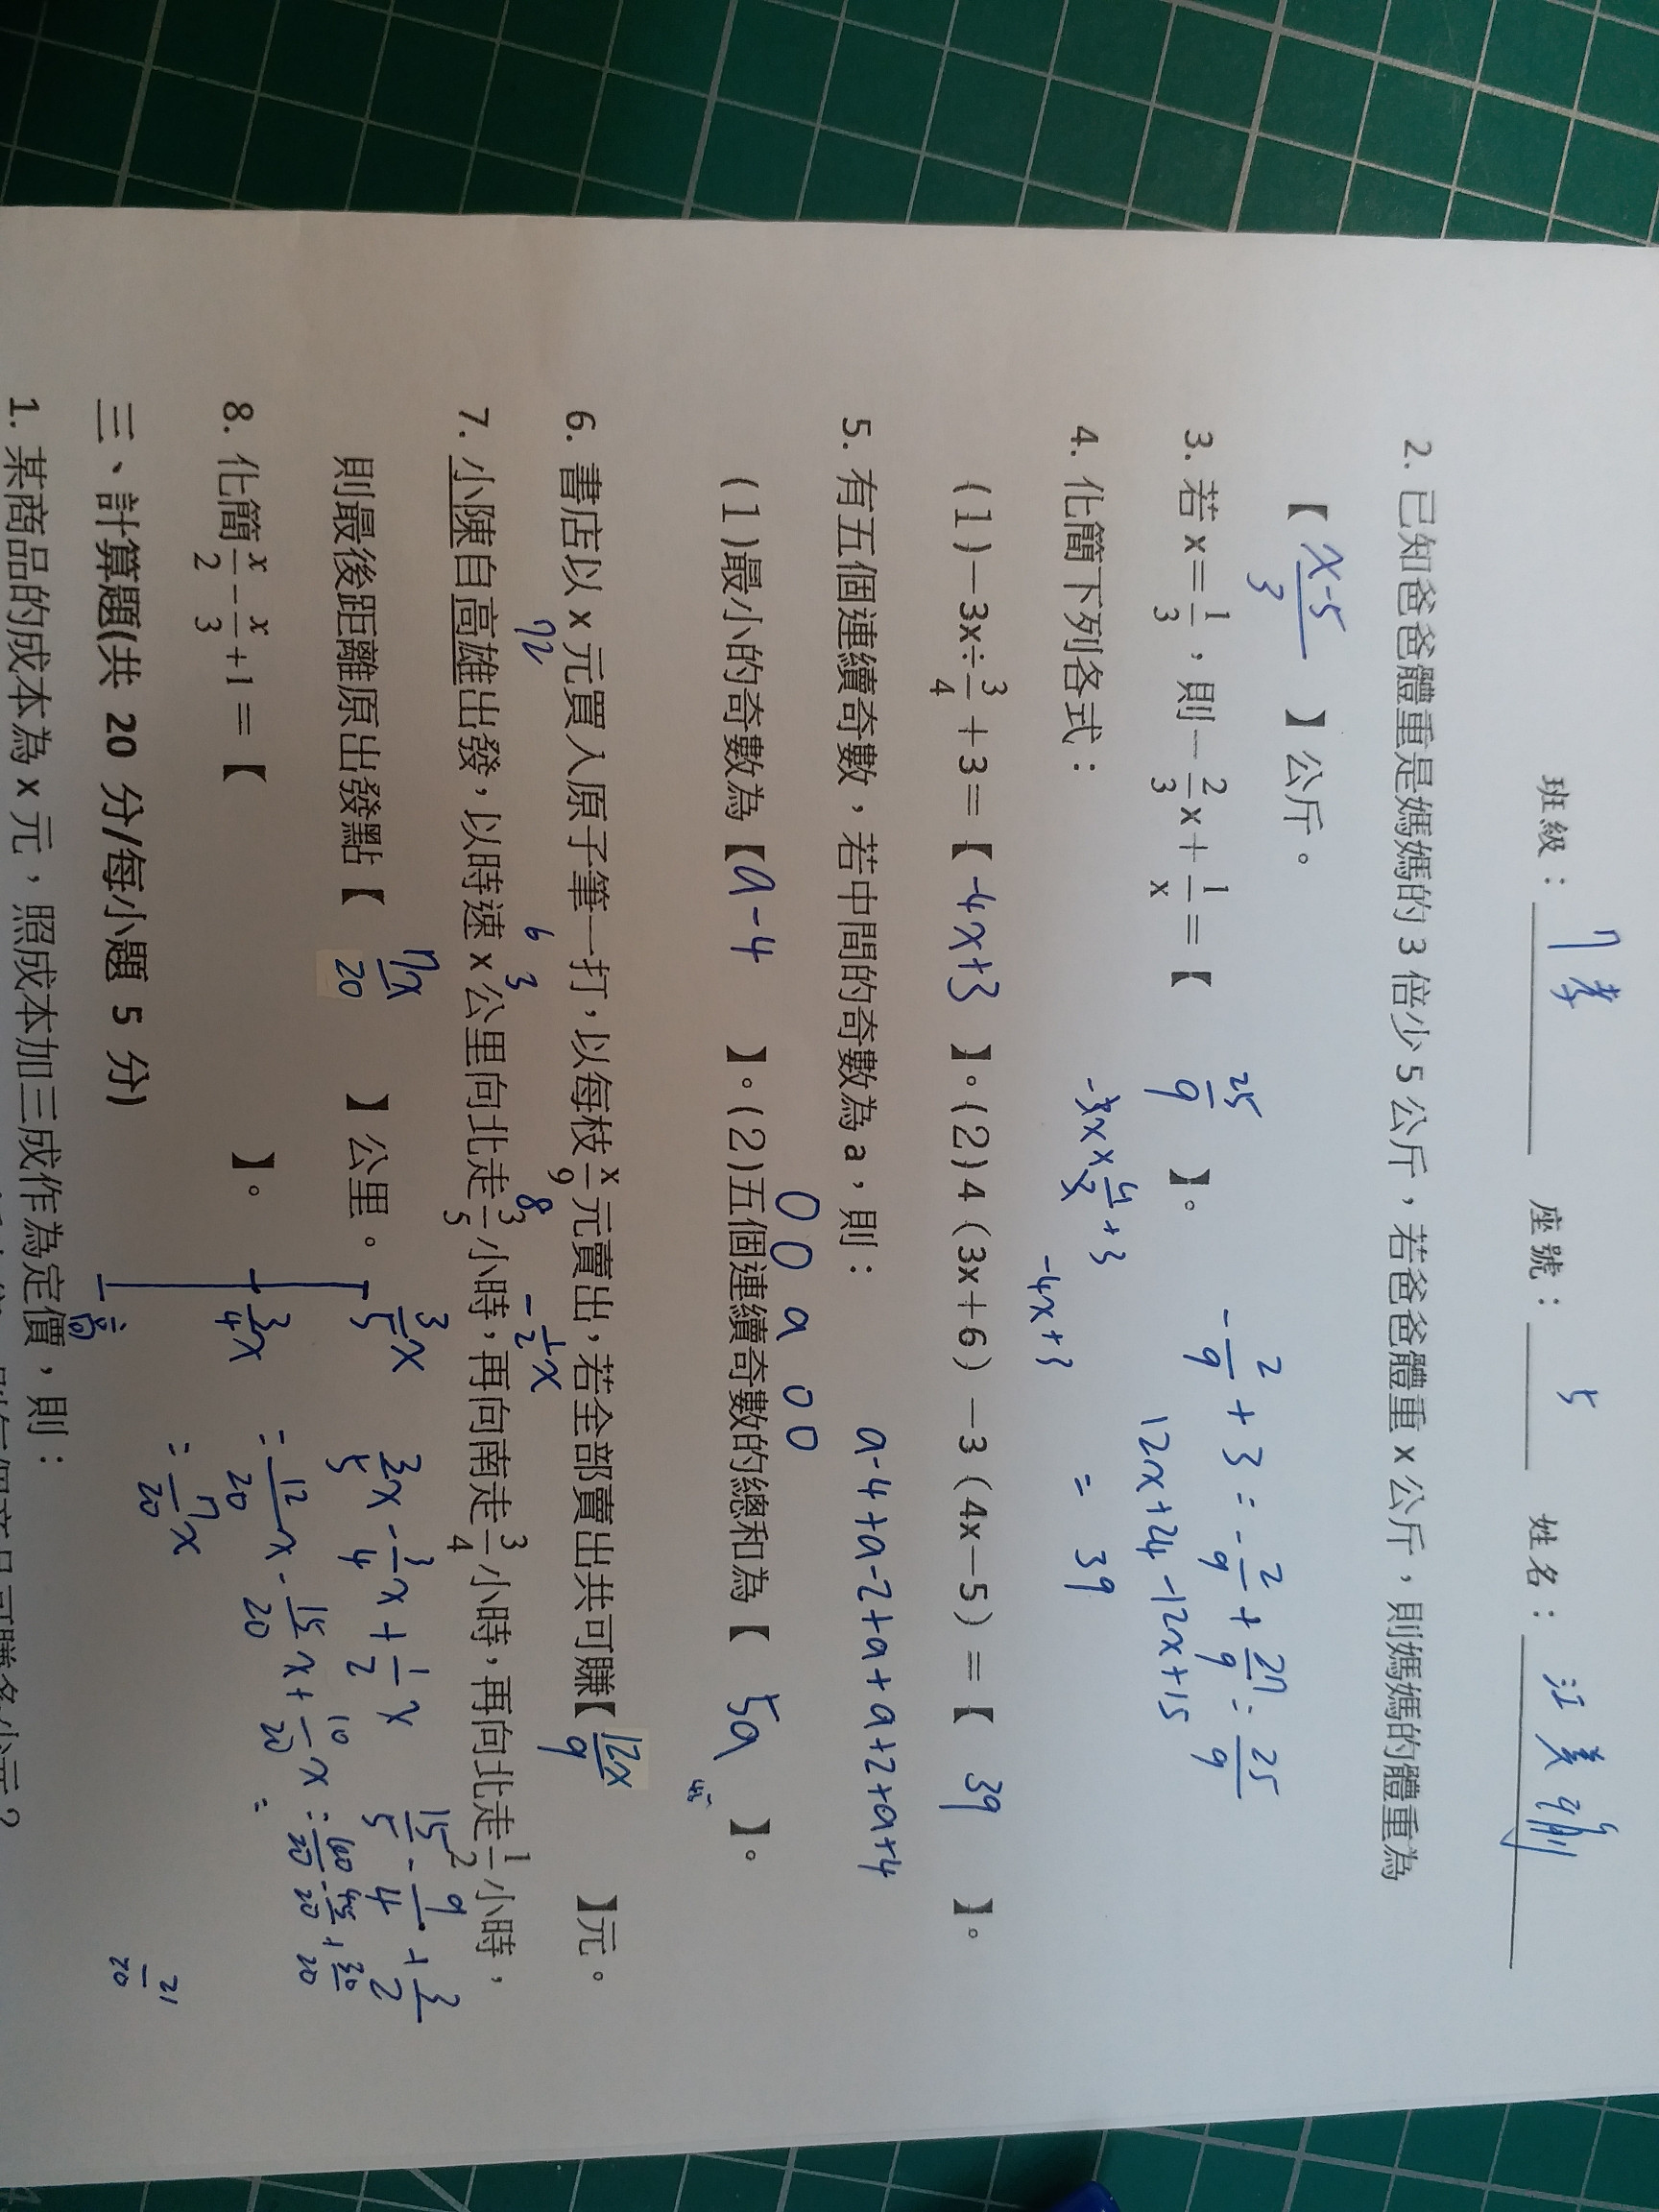 班級：7孝 座號：5 姓名：汪美
2. 已知爸爸體重是媽媽的 3 倍少 5 公斤，若爸爸體重 x 公斤，則媽媽的體重為
【 x-5/3 】公斤。
3. 若 x=1/3，則－2/3x＋1/x＝【 25/9 】。
-2/9+3=-2/9+27/9=25/9
4. 化簡下列各式：
-3x×4/3+3
-4x+3
12x+24-12x+15
= 39
(1)－3x÷3/4＋3＝【 -4x+3 】。(2)4(3x＋6)－3(4x－5)＝【 39 】。
5. 有五個連續奇數，若中間的奇數為 a，則：
a-4+a-2+a+a+2+a+4
0 0 a 0 0
(1)最小的奇數為【 a-4 】。(2)五個連續奇數的總和為【 5a 】。
6. 書店以 x 元買入原子筆一打，以每枝x/9元賣出，若全部賣出共可賺【 12x/9 】元。
72 6 3 8 -1/2x
7. 小陳自高雄出發，以時速 x 公里向北走3/5小時，再向南走3/4小時，再向北走1/2小時，
則最後距離原出發點【 7x/20 】公里。
3/5x
3/4x
3/5x-3/4x+1/2x
=12/20x-15/20x+10/20x=
=7/20x
15/5-9/4+3/2
=60/20-45/20+30/20
21/20
8. 化簡x/2－x/3＋1＝【 】。
三、計算題(共 20 分/每小題 5 分)
1. 某商品的成本為 x 元，照成本加三成作為定價，則：